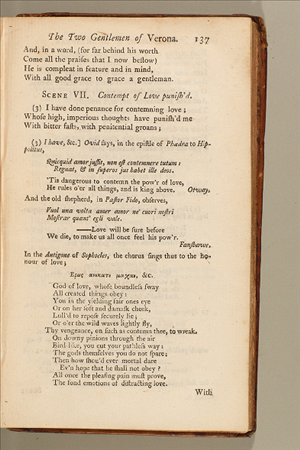 The Two Gentlemen of Verona. 137
And, in a word, (for far behind his worth
Come all the praises that I now bestow)
He is compleat in feature and in mind,
With all good grace to grace a gentleman.
SCENE VII. Contempt of Love punish'd.
(3) I have done penance for contemning love;
Whose high, imperious thoughts have punish'd me
With bitter fasts, with penitential groans;
(3) I have, &c.] Ovid says, in the epistle of Phædra to Hip-
politus,
Quicquid amor jussit, non est contemnere tutum:
Regnat, & in superos jus habet ille deos.
'Tis dangerous to contemn the pow'r of love,
He rules o'er all things, and is king above. Otway.
And the old shepherd, in Pastor Fido, observes,
Vuol una volta amor ne' cuori nostri
Mostrar quant' egli vale.
——Love will be sure before
We die, to make us all once feel his pow'r.
Fanshawe.
In the Antigone of Sophocles, the chorus sings thus to the ho-
nour of love;
Ερως ανικατε μαχαν, &c.
God of love, whose boundless sway
All created things obey:
You in the yielding fair ones eye
Or on her soft and damask cheek,
Lull'd to repose securely lie;
Or o'er the wild waves lightly fly,
Thy vengeance, on such as contemn thee, to wreak.
On downy pinions through the air
Bird-like, you cut your pathless way;
The gods themselves you do not spare;
Then how shou'd ever mortal dare
Ev'n hope that he shall not obey?
All once the pleasing pain must prove,
The fond emotions of distracting love.
With